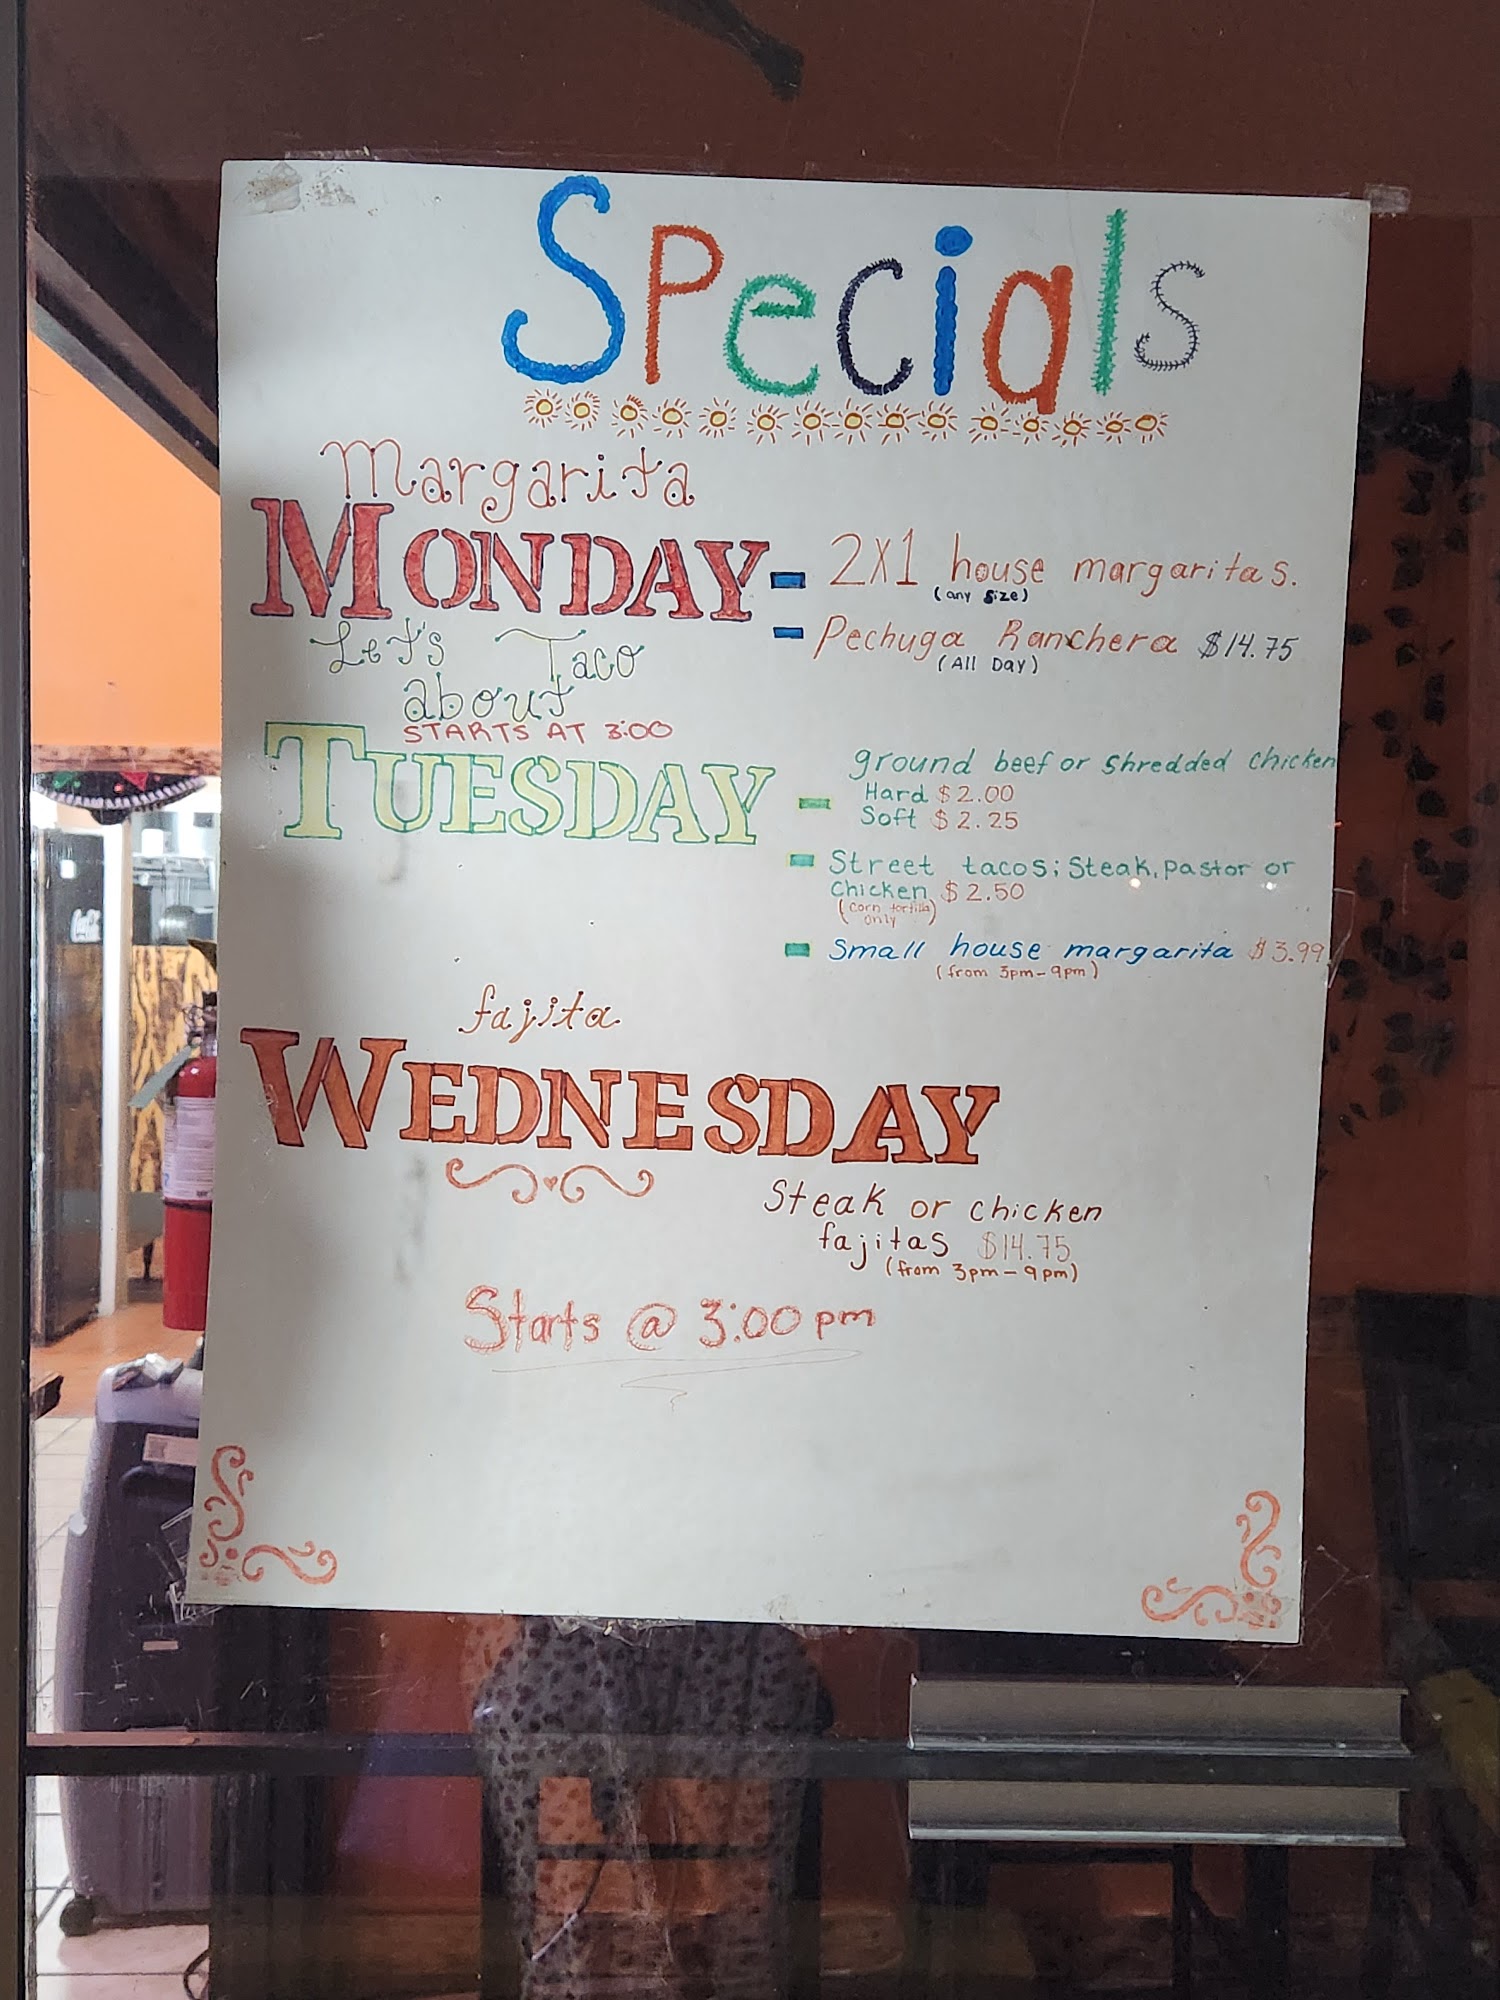 Specials
Margarita
MONDAY
- 2X1 house margaritas.
(any size)
- Pechuga Ranchera $14.75
(All Day)
Let's Taco
about
STARTS AT 3:00
TUESDAY
- ground beef or shredded chicken
Hard $2.00
Soft $2.25
- Street tacos; Steak, pastor or
chicken $2.50
(corn tortilla
only)
- Small house margarita $3.99
(from 3pm-9pm)
fajita
WEDNESDAY
Steak or chicken
fajitas $14.75
(from 3pm-9pm)
Starts @ 3:00 pm